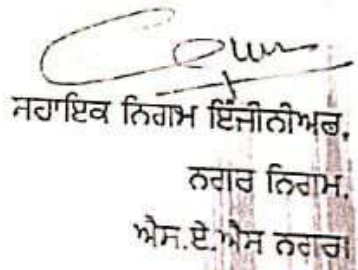 ਸਹਾਇਕ ਨਿਗਮ ਇੰਜੀਨੀਅਰ,
ਨਗਰ ਨਿਗਮ,
ਐਸ.ਏ.ਐਸ ਨਗਰ।